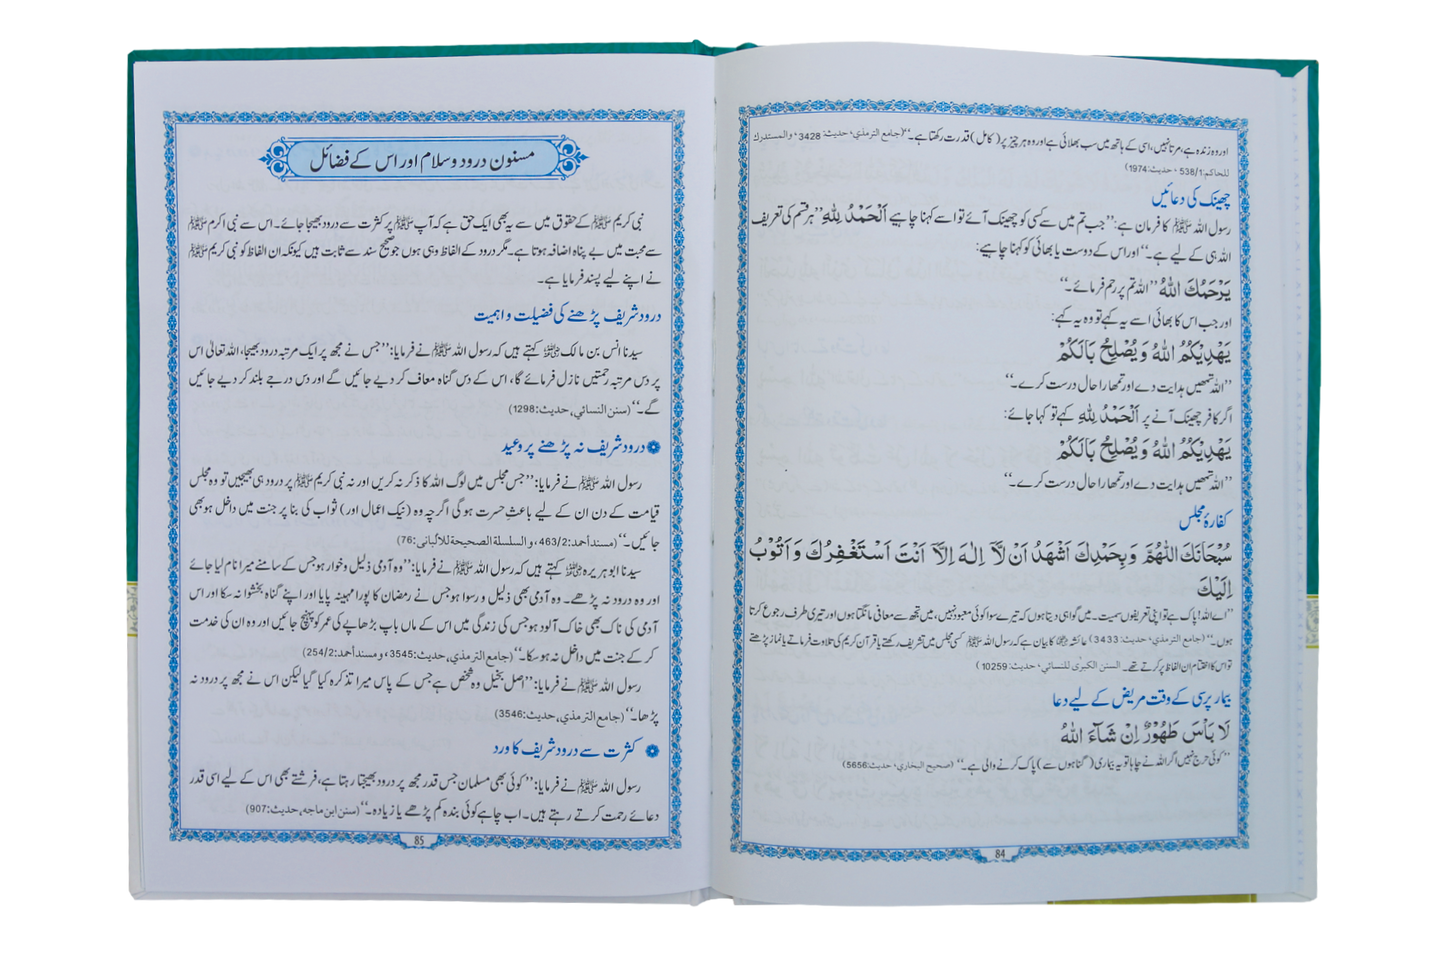 اور وہ زندہ ہے، مرتا نہیں، اسی کے ہاتھ میں سب بھلائی ہے اور وہ ہر چیز پر (کامل) قدرت رکھتا ہے۔‘‘ (جامع الترمذي، حديث: 3428، والمستدرك
للحاكم: 538/1، حديث: 1974)
چھینک کی دعائیں
رسول اللہ ﷺ کا فرمان ہے: ’’جب تم میں سے کسی کو چھینک آئے تو اسے کہنا چاہیے اَلْحَمْدُ لِلّٰهِ ’’ہر قسم کی تعریف
اللہ ہی کے لیے ہے۔‘‘ اور اس کے دوست یا بھائی کو کہنا چاہیے:
يَرْحَمُكَ اللّٰهُ ’’اللہ تم پر رحم فرمائے۔‘‘
اور جب اس کا بھائی اسے یہ کہے تو وہ یہ کہے:
يَهْدِيْكُمُ اللّٰهُ وَيُصْلِحُ بَالَكُمْ
’’اللہ تمھیں ہدایت دے اور تمھارا حال درست کرے۔‘‘
اگر کافر چھینک آنے پر اَلْحَمْدُ لِلّٰهِ کہے تو کہا جائے:
يَهْدِيْكُمُ اللّٰهُ وَيُصْلِحُ بَالَكُمْ
’’اللہ تمھیں ہدایت دے اور تمھارا حال درست کرے۔‘‘
کفارۂ مجلس
سُبْحَانَكَ اللّٰهُمَّ وَبِحَمْدِكَ اَشْهَدُ اَنْ لَّآ اِلٰهَ اِلَّآ اَنْتَ اَسْتَغْفِرُكَ وَاَتُوْبُ
اِلَيْكَ
’’اے اللہ! پاک ہے تو اپنی تعریفوں سمیت۔ میں گواہی دیتا ہوں کہ تیرے سوا کوئی معبود نہیں، میں تجھ سے معافی مانگتا ہوں اور تیری طرف رجوع کرتا
ہوں۔‘‘ (جامع الترمذي، حديث: 3433) عائشہ ؓ کا بیان ہے کہ رسول اللہ ﷺ کسی مجلس میں تشریف رکھتے یا قرآن کریم کی تلاوت فرماتے یا نماز پڑھتے
تو اس کا اختتام ان الفاظ پر کرتے تھے۔ السنن الكبرى للنسائي، حديث: 10259)
بیمار پرسی کے وقت مریض کے لیے دعا
لَا بَأْسَ طَهُوْرٌ اِنْ شَآءَ اللّٰهُ
’’کوئی حرج نہیں اگر اللہ نے چاہا تو یہ بیماری (گناہوں سے) پاک کرنے والی ہے۔‘‘ (صحيح البخاري، حديث: 5656)
84
مسنون درود و سلام اور اس کے فضائل
نبی کریم ﷺ کے حقوق میں سے یہ بھی ایک حق ہے کہ آپ ﷺ پر کثرت سے درود بھیجا جائے۔ اس سے نبی اکرم ﷺ
سے محبت میں بے پناہ اضافہ ہوتا ہے۔ مگر درود کے الفاظ وہی ہوں جو صحیح سند سے ثابت ہیں کیونکہ ان الفاظ کو نبی کریم ﷺ
نے اپنے لیے پسند فرمایا ہے۔
درود شریف پڑھنے کی فضیلت و اہمیت
سیدنا انس بن مالک ؓ کہتے ہیں کہ رسول اللہ ﷺ نے فرمایا: ’’جس نے مجھ پر ایک مرتبہ درود بھیجا، اللہ تعالیٰ اس
پر دس مرتبہ رحمتیں نازل فرمائے گا، اس کے دس گناہ معاف کر دیے جائیں گے اور دس درجے بلند کر دیے جائیں
گے۔‘‘ (سنن النسائي، حديث: 1298)
درود شریف نہ پڑھنے پر وعید
رسول اللہ ﷺ نے فرمایا: ’’جس مجلس میں لوگ اللہ کا ذکر نہ کریں اور نہ نبی کریم ﷺ پر درود ہی بھیجیں تو وہ مجلس
قیامت کے دن ان کے لیے باعثِ حسرت ہوگی اگرچہ وہ (نیک اعمال اور) ثواب کی بنا پر جنت میں داخل ہو بھی
جائیں۔‘‘ (مسند أحمد: 463/2، والسلسلة الصحيحة للألباني: 76)
سیدنا ابوہریرہ ؓ کہتے ہیں کہ رسول اللہ ﷺ نے فرمایا: ’’وہ آدمی ذلیل و خوار ہو جس کے سامنے میرا نام لیا جائے
اور وہ درود نہ پڑھے۔ وہ آدمی بھی ذلیل و رسوا ہو جس نے رمضان کا پورا مہینہ پایا اور اپنے گناہ بخشوا نہ سکا اور اس
آدمی کی ناک بھی خاک آلود ہو جس کی زندگی میں اس کے ماں باپ بڑھاپے کی عمر کو پہنچ جائیں اور وہ ان کی خدمت
کر کے جنت میں داخل نہ ہو سکا۔‘‘ (جامع الترمذي، حديث: 3545، ومسند أحمد: 254/2)
رسول اللہ ﷺ نے فرمایا: ’’اصل بخیل وہ شخص ہے جس کے پاس میرا تذکرہ کیا گیا لیکن اس نے مجھ پر درود نہ
پڑھا۔‘‘ (جامع الترمذي، حديث: 3546)
کثرت سے درود شریف کا ورد
رسول اللہ ﷺ نے فرمایا: ’’کوئی بھی مسلمان جس قدر مجھ پر درود بھیجتا رہتا ہے، فرشتے بھی اس کے لیے اسی قدر
دعائے رحمت کرتے رہتے ہیں۔ اب چاہے کوئی بندہ کم پڑھے یا زیادہ۔‘‘ (سنن ابن ماجه، حديث: 907)
85